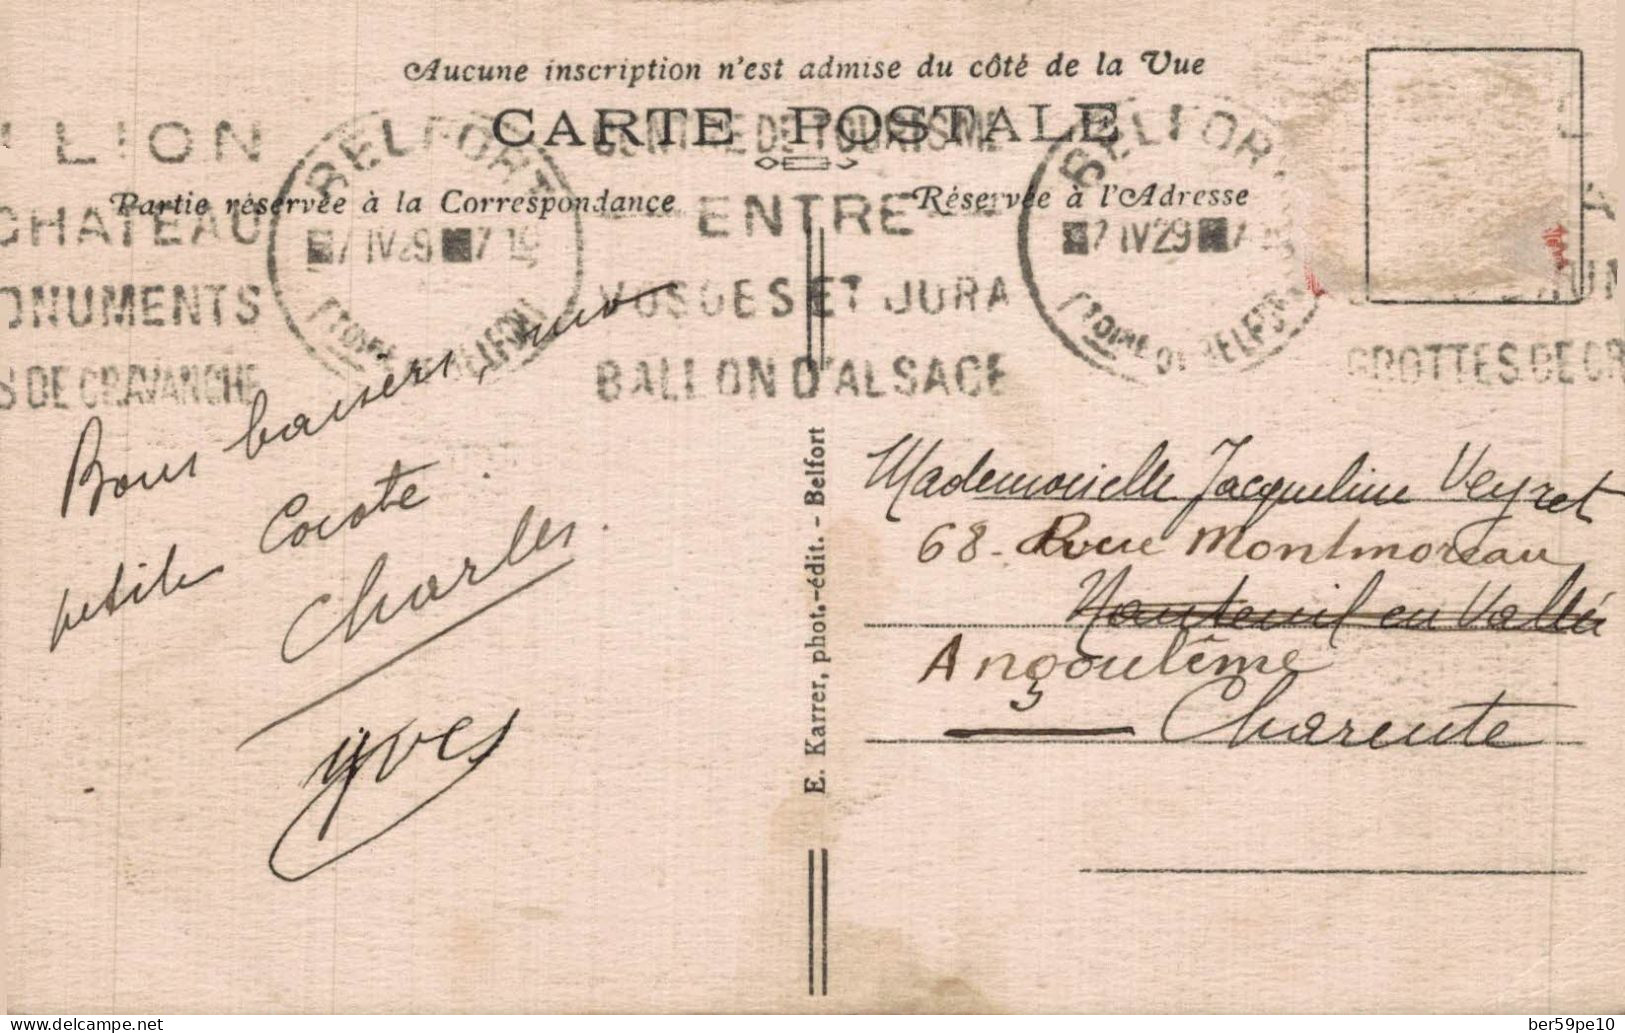 Aucune inscription n'est admise du côté de la Vue
CARTE POSTALE
Partie réservée à la Correspondance
Réservée à l'Adresse
LION
CHATEAU
MONUMENTS
S DE CRAVANCHE
BELFORT
7 IV 29 7
TRE DE TOURISME
ENTRE
VOSGES ET JURA
BALLON D'ALSACE
BELFORT
7 IV 29
GROTTES DE CR
Bons baisers, ma
petite Cocote
Charles
Yves
E. Karrer, phot.-édit. - Belfort
Mademoiselle Jacqueline Veyret
68 - Rue Montmoreau
Nanteuil en Vallée
Angoulême
Charente
www.delcampe.net
ber59pe10